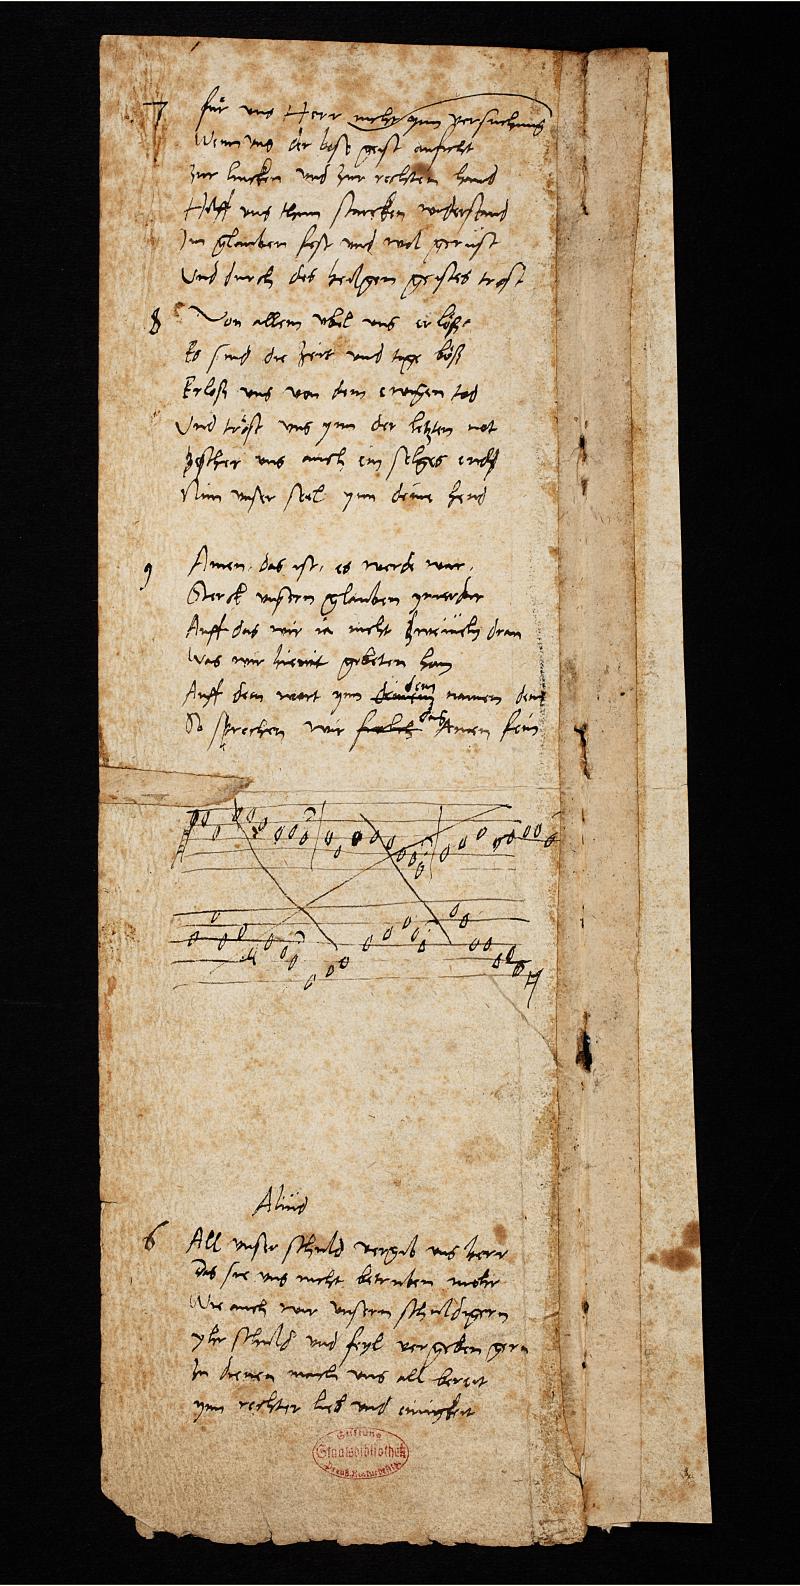 7 für uns Herr nicht ynn versuchung
Wenn uns der bose geist anficht
Zur lincken und zur rechten hand
Hilff uns thun starcken widerstand
Im glauben fest und wol gerüst
Und durch des heilgen geistes trost
8 Von allem ubel uns erlöse
Es sind die zeit und tage böß
Erlöß uns von dem ewigen tod
Und tröst uns ynn der letzten not
Bescher uns auch ein seliges end
Nim unser seel ynn deine hend
9 Amen. das ist, es werde war.
Sterck unsern glauben ymerdar
Auff das wir ia nicht zweiveln dran
Was wir hiemit gebeten han
Auff dein wort ynn dem namen dein
So sprechen wir das Amen fein
Aliud
6 All unser schuld vergib uns herr
Das sie uns nicht betruben mehr
Wie auch wir unsern schuldigern
yhr schuld und feyl vergeben gern
Zu dienen mach uns all bereit
ynn rechter lieb und einigkeit
Stiftung
Staatsbibliothek
Preuß. Kulturbesitz